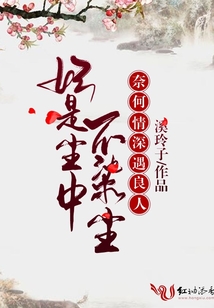 是尘中
不染尘
奈何情深遇良人
溪玲子/作品
红袖添香